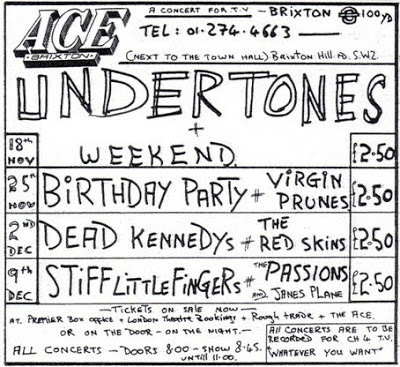 ACE
BRIXTON
A CONCERT FOR T.V - BRIXTON 100 YD
TEL: 01·274·4663
(NEXT TO THE TOWN HALL) BRIXTON HILL RD. S.W2.
UNDERTONES
+
18th NOV WEEKEND. £2·50
25th NOV BIRTHDAY PARTY + VIRGIN PRUNES £2·50
2ND DEC DEAD KENNEDYs + THE RED SKINS £2·50
9th DEC STIFF LITTLE FINGERS + THE PASSIONS AND JANES PLANE £2·50
—TICKETS ON SALE NOW—
AT. PREMIER BOX OFFICE + LONDON THEATRE BOOKINGS + ROUGH TRADE + THE ACE.
OR ON THE DOOR - ON THE NIGHT.—
ALL CONCERTS — DOORS 8.00 - SHOW 8.45.
UNTILL 11.00.
All CONCERTS ARE TO BE
RECORDED FOR CH 4 T.V.
"WHATEVER YOU WANT"